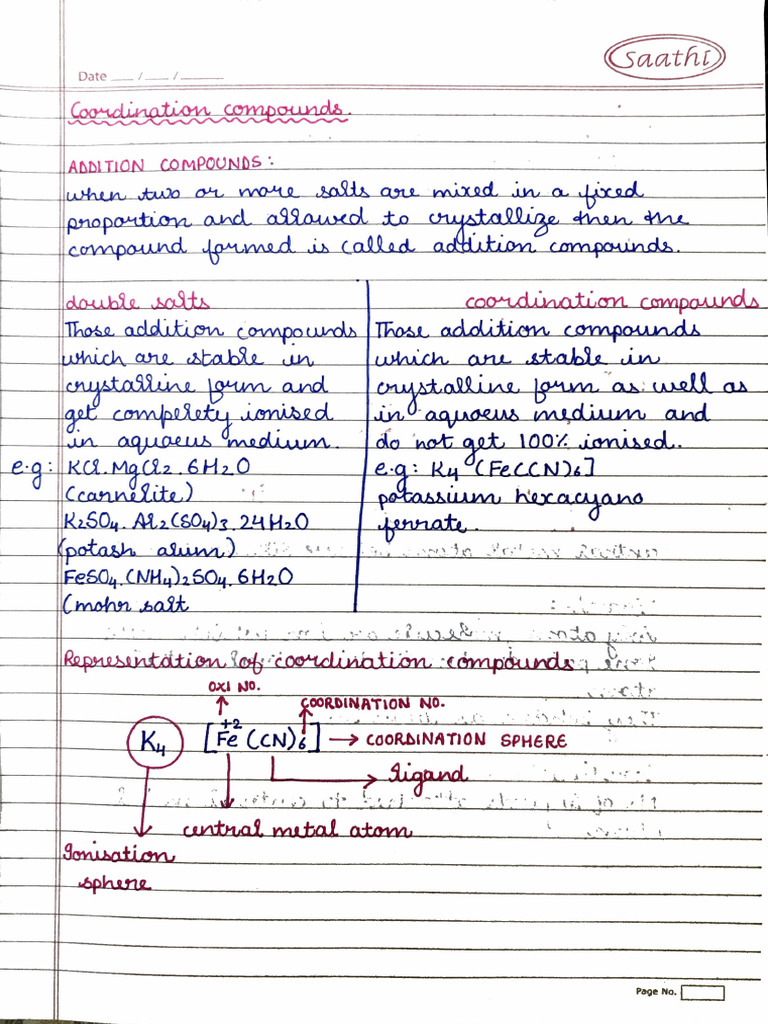 saathi
Date ___/___/_____
Coordination compounds.
ADDITION COMPOUNDS:
when two or more salts are mixed in a fixed
proportion and allowed to crystallize then the
compound formed is called addition compounds.
double salts
Those addition compounds
which are stable in
crystalline form and
get complerety ionised
in aquoeus medium.
e.g: KCl.MgCl2.6H2O
(carnelite)
K2SO4.Al2(SO4)3.24H2O
(potash alum)
FeSO4.(NH4)2SO4.6H2O
(mohr salt
coordination compounds
Those addition compounds
which are stable in
crystalline form as well as
in aquoeus medium and
do not get 100% ionised.
e.g: K4 (Fe(CN)6]
potassium hexacyano
ferrate.
Representation of coordination compounds
OXI NO.
COORDINATION NO.
K4 [Fe+2(CN)6] → COORDINATION SPHERE
ligand
central metal atom
Ionisation
sphere
Page No.